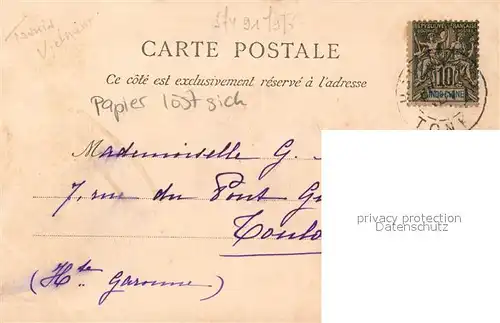 Tonkin
Vietnam
CARTE POSTALE
Ce côté est exclusivement réservé à l'adresse
RÉPUBLIQUE FRANÇAISE
10
INDO-CHINE
TONK
Papier löst sich
Mademoiselle G.
7, rue du Pont Gu
Toulo
(Hte Garonne)
privacy protection
Datenschutz